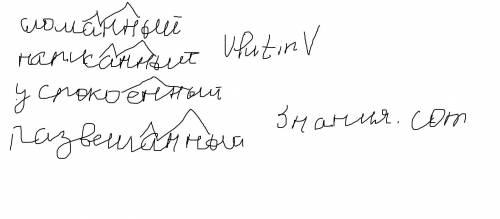 сломанный
написанный VlutinV
успокоенный
развешанный
Знания.com